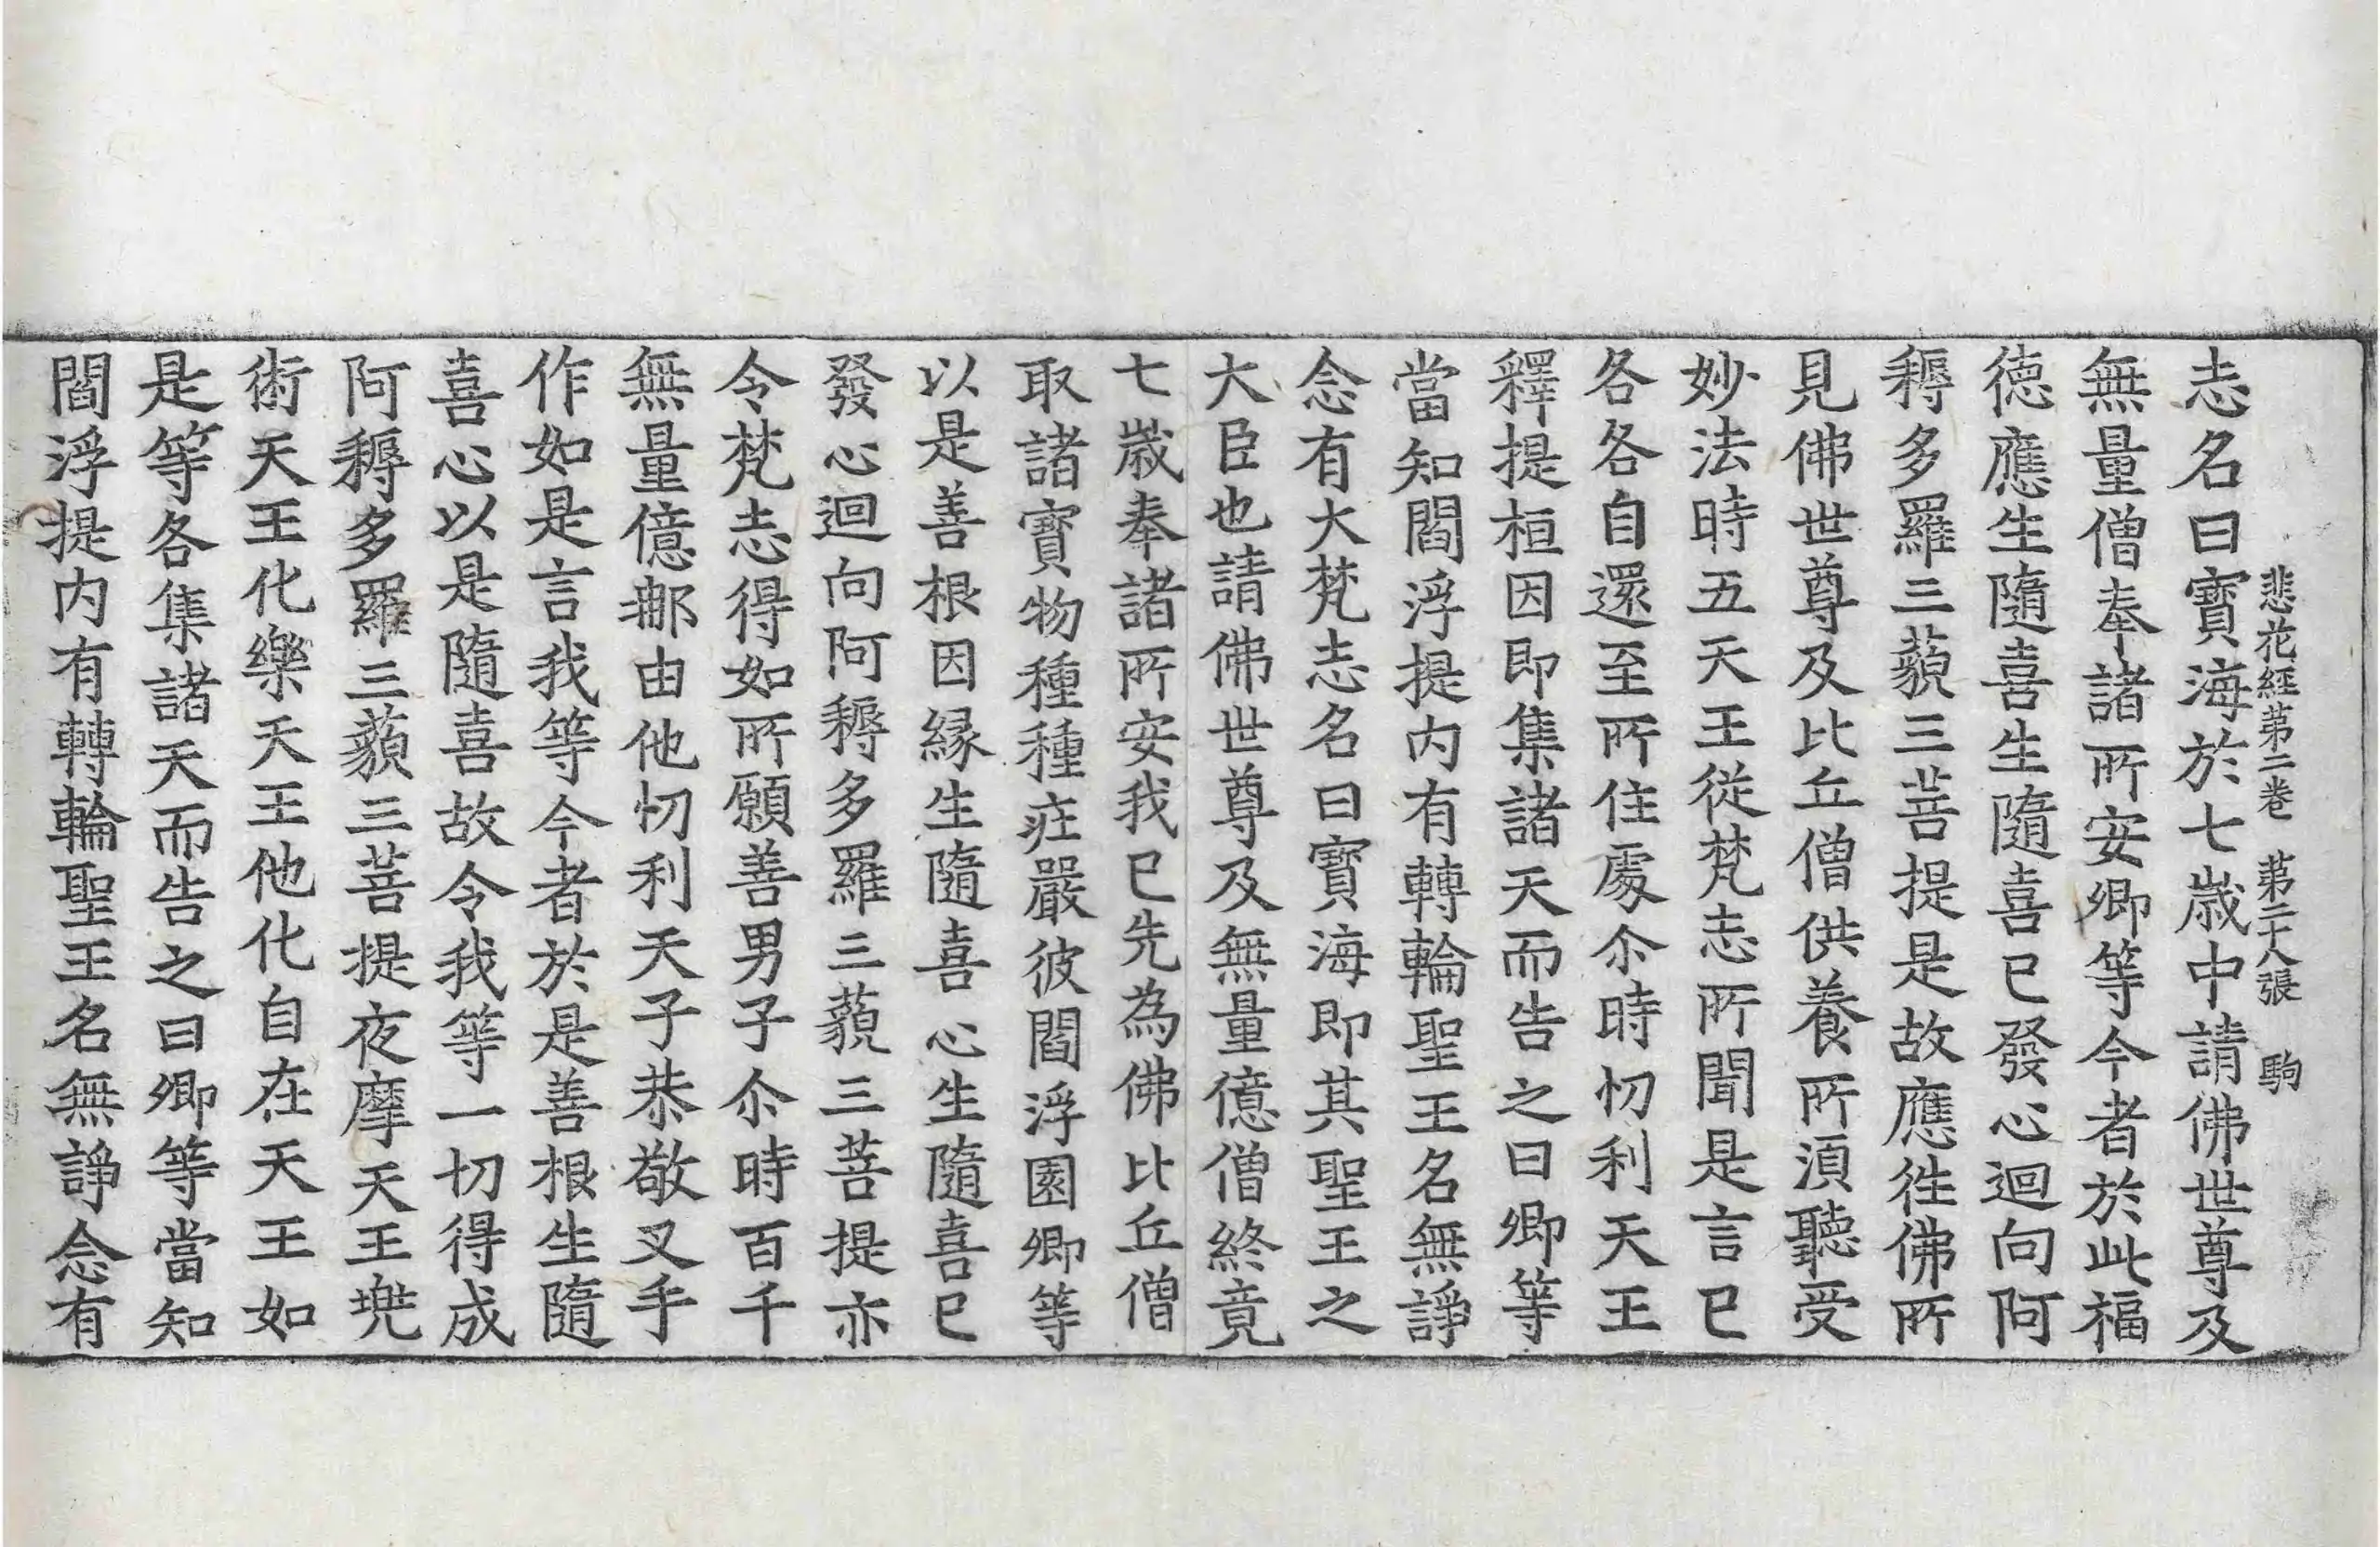 悲花經第二卷　第二十八張　駒
志名曰寶海於七歲中請佛世尊及
無量僧奉諸所安卿等今者於此福
德應生隨喜生隨喜已發心迴向阿
耨多羅三藐三菩提是故應往佛所
見佛世尊及比丘僧供養所湏聽受
妙法時五天王從梵志所聞是言已
各各自還至所住處尒時忉利天王
釋提桓因即集諸天而告之曰卿等
當知閻浮提內有轉輪聖王名無諍
念有大梵志名曰寶海即其聖王之
大臣也請佛世尊及無量億僧終竟
七歲奉諸所安我已先為佛比丘僧
取諸寶物種種莊嚴彼閻浮園卿等
以是善根因緣生隨喜心生隨喜已
發心迴向阿耨多羅三藐三菩提亦
令梵志得如所願善男子尒時百千
無量億那由他忉利天子恭敬叉手
作如是言我等今者於是善根生隨
喜心以是隨喜故令我等一切得成
阿耨多羅三藐三菩提夜摩天王兠
術天王化樂天王他化自在天王如
是等各集諸天而告之曰卿等當知
閻浮提內有轉輪聖王名無諍念有